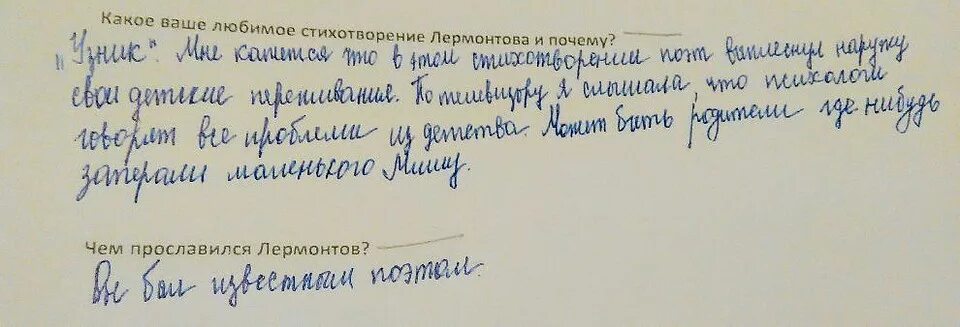 Какое ваше любимое стихотворение Лермонтова и почему?
"Узник". Мне кажется что в этом стихотворении поэт выплеснул наружу
свои детские переживания. По телевизору я слышала, что психологи
говорят все проблемы из детства. Может быть родители где нибудь
заперали маленького Мишу.
Чем прославился Лермонтов?
Он был известным поэтом.